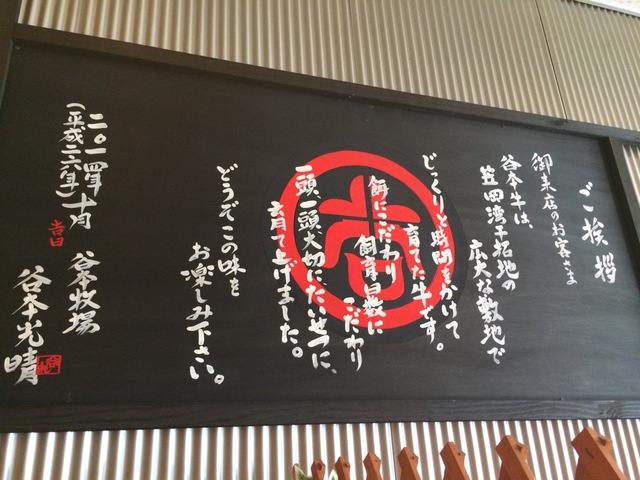 ご挨拶
御来店のお客さま
谷本牛は、
笠岡湾干拓地の
広大な敷地で
じっくりと時間をかけて
育てた牛です。
餌にこだわり
飼育日数に
こだわり
一頭一頭大切にたいせつに、
育て上げました。
どうぞこの味を
お楽しみ下さい。
二〇一四年
(平成二六年)
十月
吉日
谷本牧場
谷本光晴